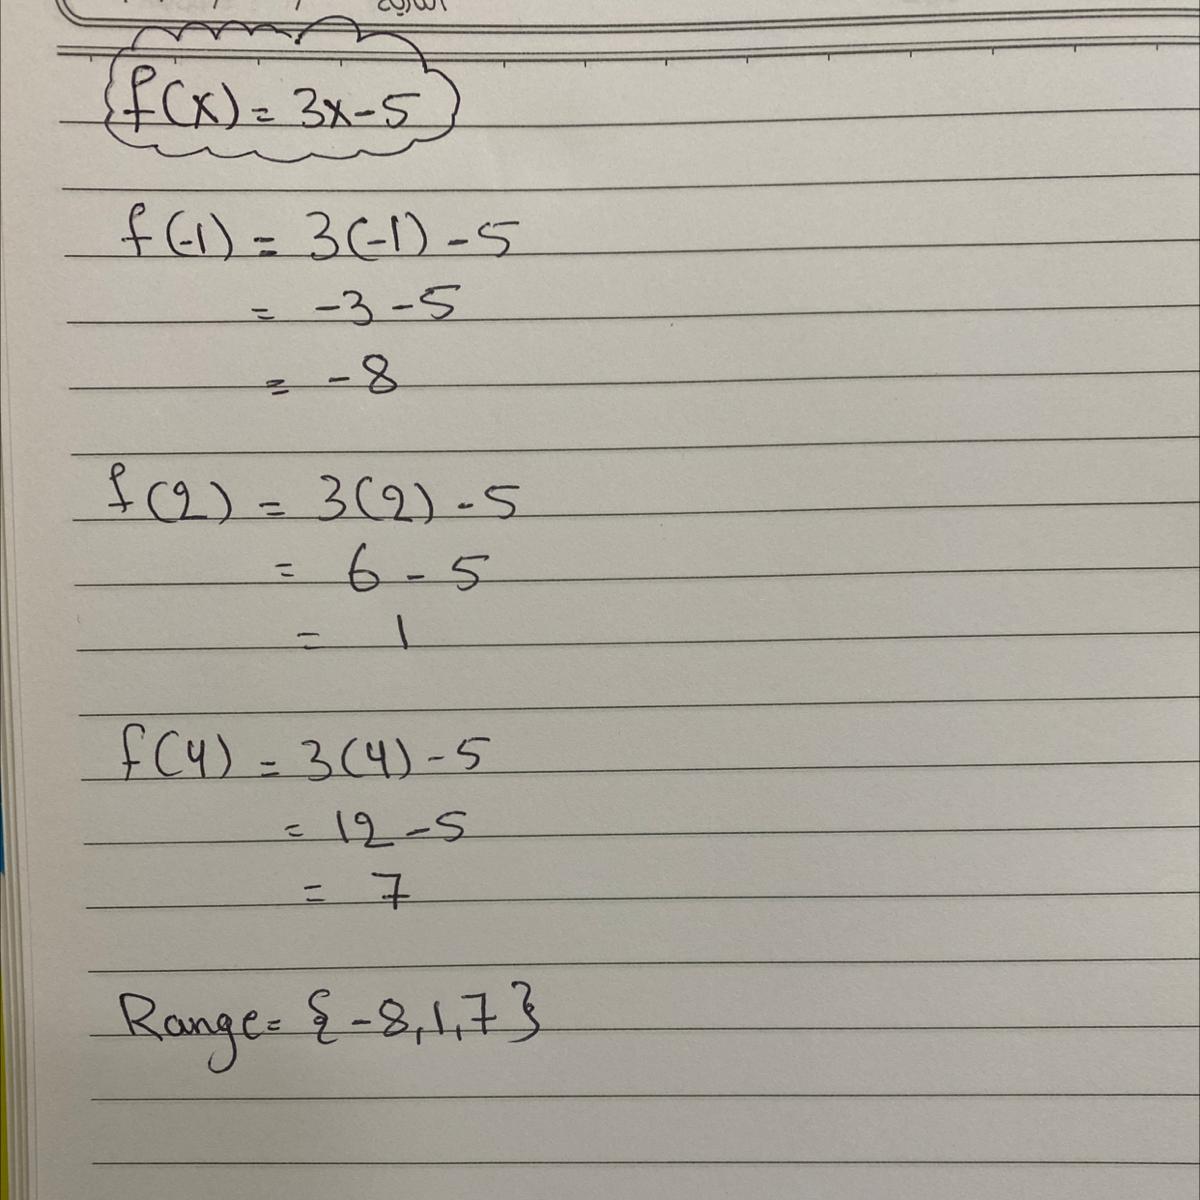 التاريخ / /
f(x) = 3x-5
f(-1) = 3(-1) - 5
= -3 - 5
= -8
f(2) = 3(2) - 5
= 6 - 5
= 1
f(4) = 3(4) - 5
= 12 - 5
= 7
Range = {-8, 1, 7}